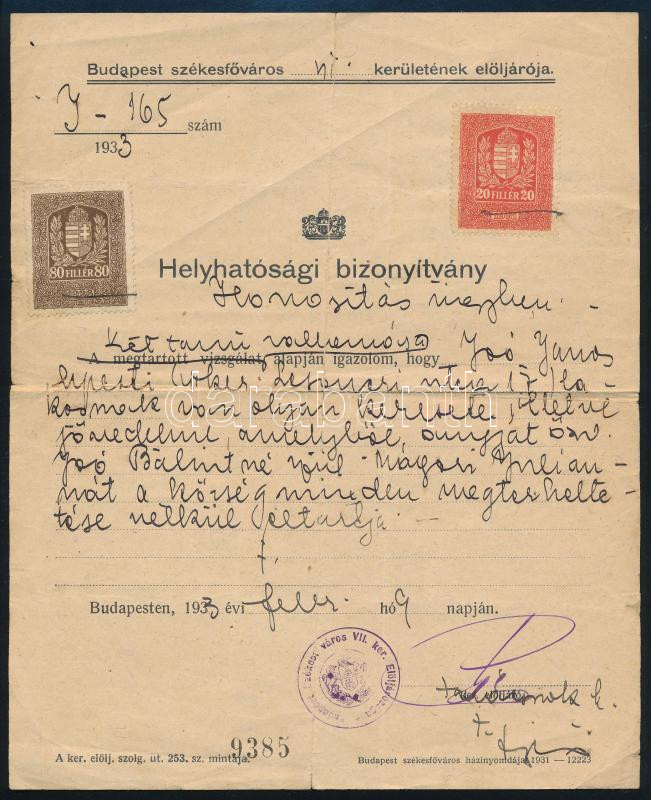 Budapest székesfőváros VII. kerületének elöljárója.
I - 165 szám
1933
20 FILLÉR 20
80 FILLÉR 80
Helyhatósági bizonyítvány
Honosítás ügyben.
Két tanú vallomása
A megtartott vizsgálat alapján igazolom, hogy Joó János
lakosnak van olyan keresete, illetve
jövedelme, amelyből, anyját özv.
Joó Bálintné szül. Magori Julian-
nát a község minden megterhelte-
tése nélkül eltartja.
Budapesten, 1933 évi febr. hó 9 napján.
Székesfőváros VII. ker. Elöljárósága
tanácsnok h.
9385
A ker. elölj. szolg. ut. 253. sz. mintája.
Budapest székesfőváros házinyomdája 1931 — 12223
darabanth